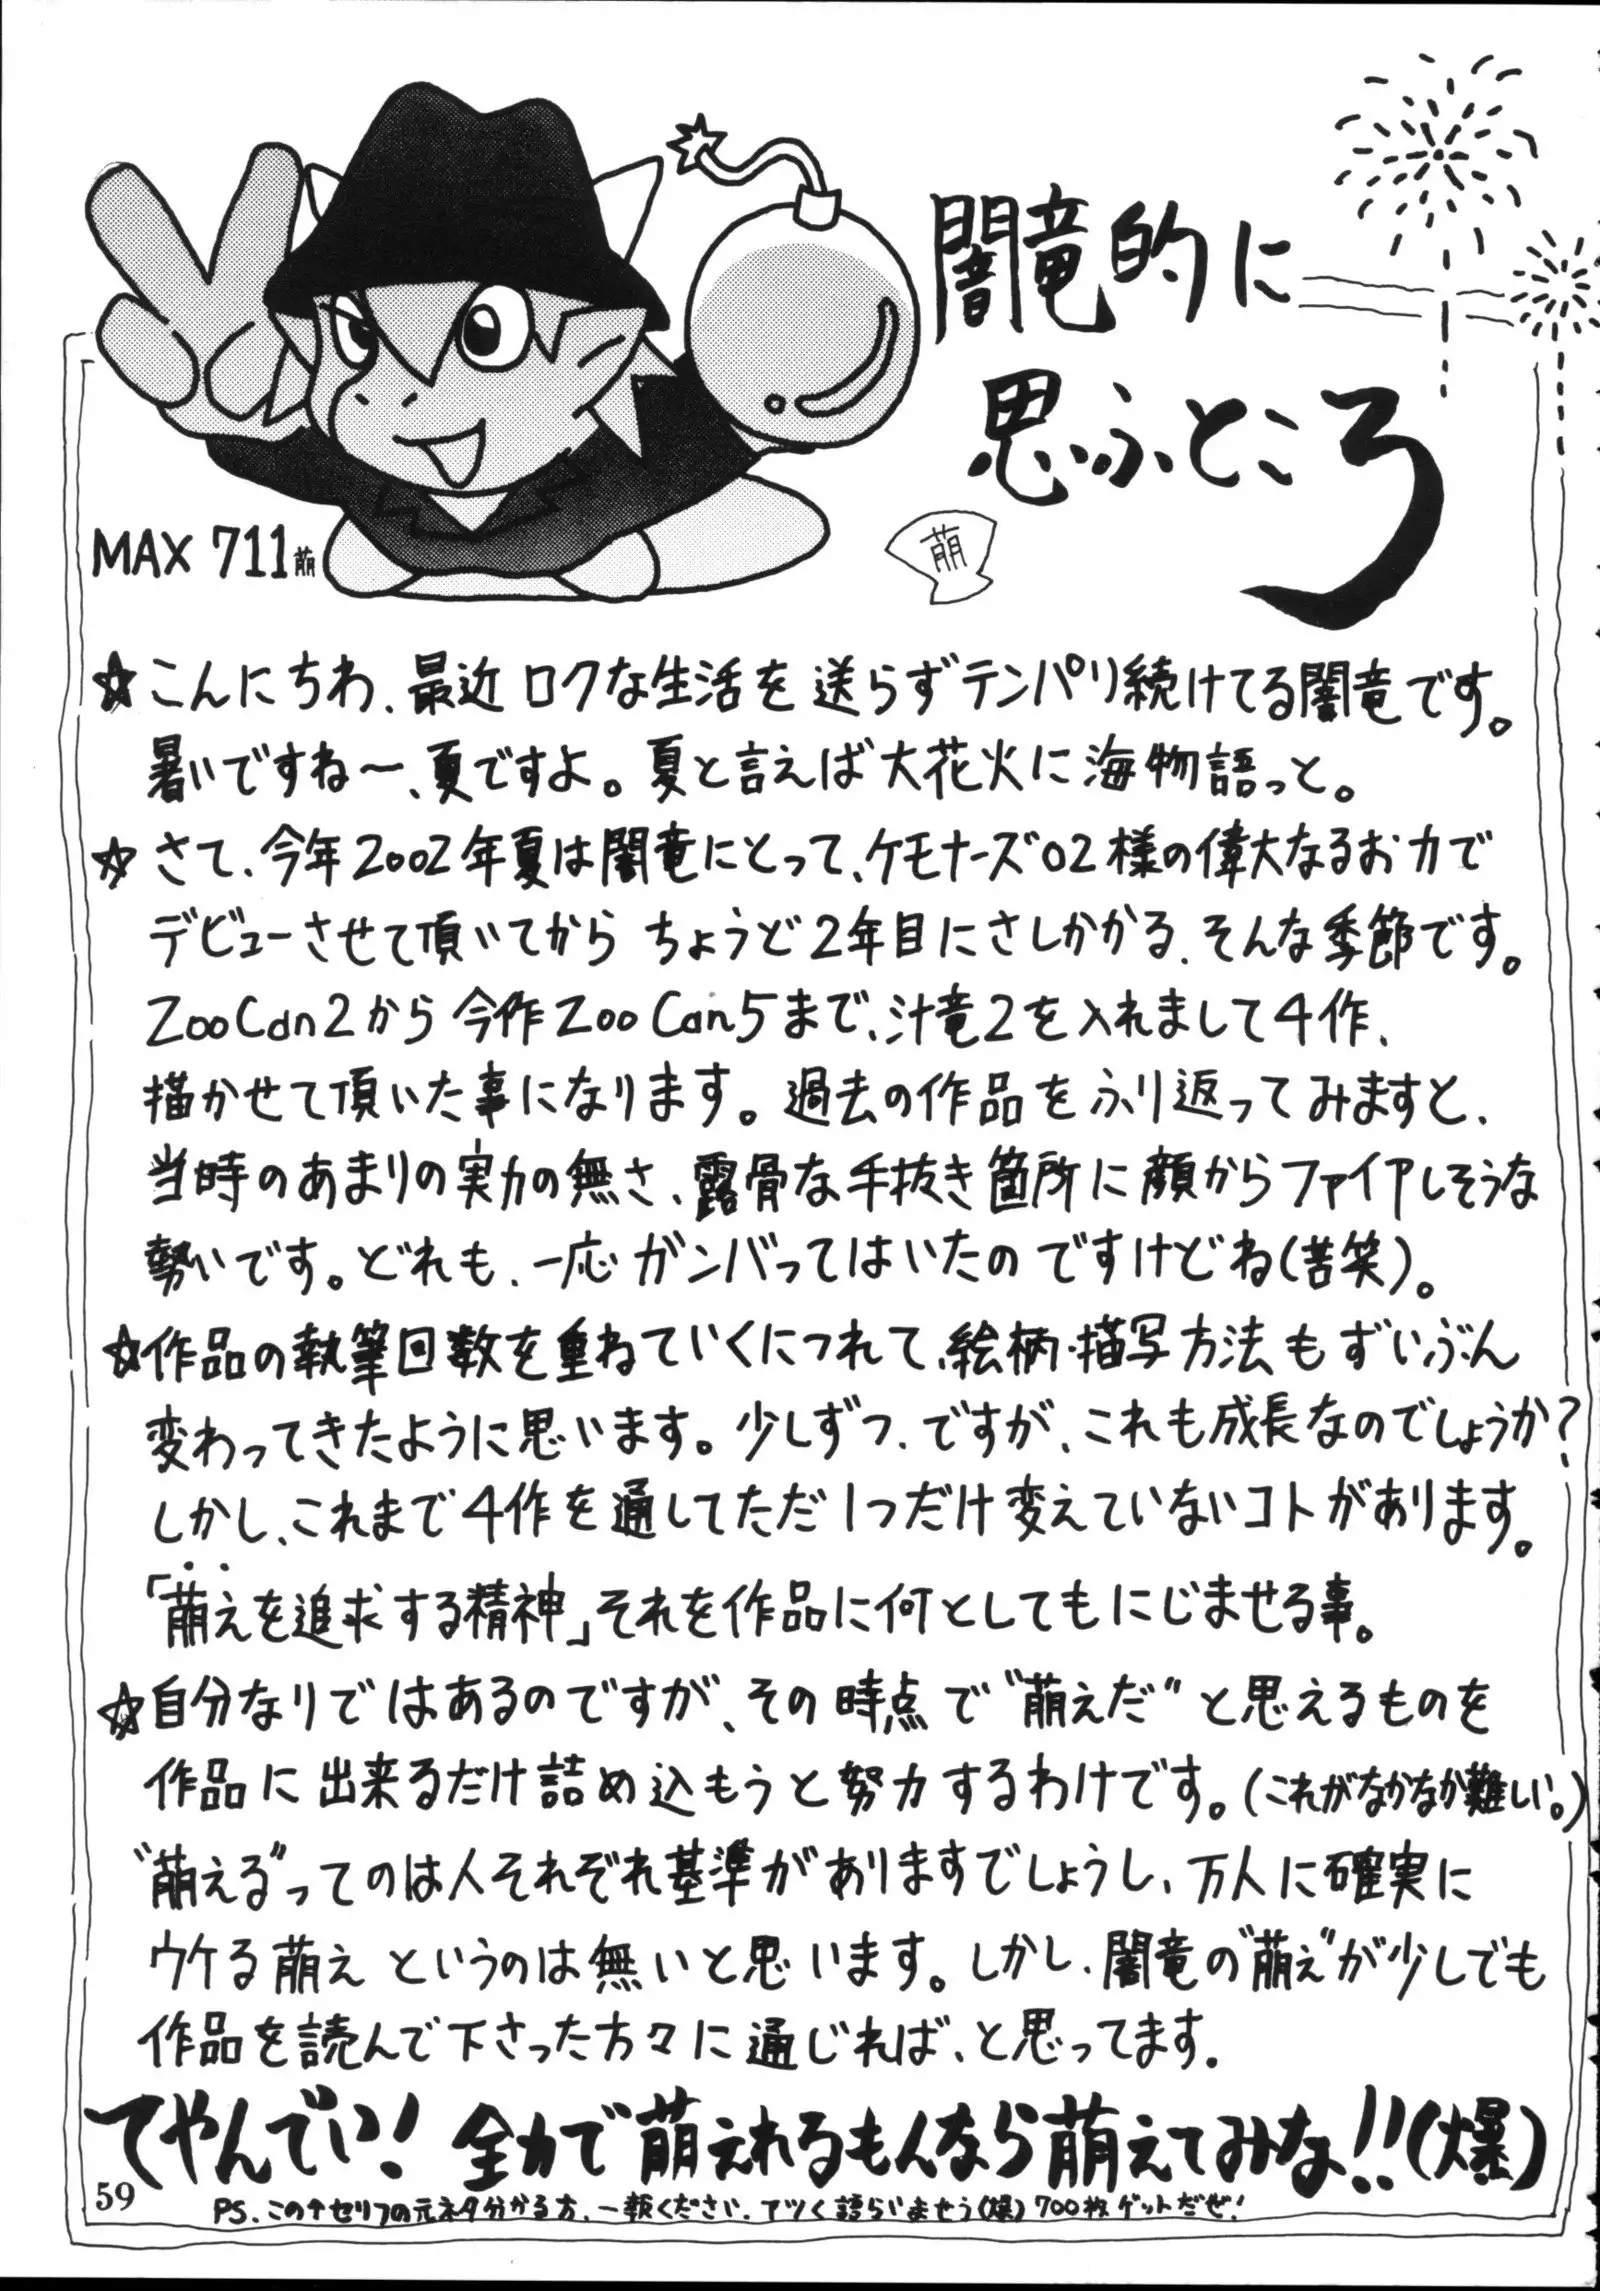 闇竜的に
思ふところ
萌
MAX 711萌
☆こんにちわ、最近ロクな生活を送らずテンパリ続けてる闇竜です。
暑いですね〜、夏ですよ。夏と言えば大花火に海物語っと。
☆さて、今年2002年夏は闇竜にとって、ケモナーズ02様の偉大なるお力で
デビューさせて頂いてからちょうど2年目にさしかかる、そんな季節です。
ZooCan2から今作ZooCan5まで、汁竜2を入れまして4作、
描かせて頂いた事になります。過去の作品をふり返ってみますと、
当時のあまりの実力の無さ、露骨な手抜き箇所に顔からファイアしそうな
勢いです。どれも、一応ガンバってはいたのですけどね(苦笑)。
☆作品の執筆回数を重ねていくにつれて、絵柄・描写方法もずいぶん
変わってきたように思います。少しずつ、ですが、これも成長なのでしょうか?
しかし、これまで4作を通してただ1つだけ変えていないコトがあります。
「萌えを追求する精神」それを作品に何としてもにじませる事。
☆自分なりではあるのですが、その時点で“萌えだ”と思えるものを
作品に出来るだけ詰め込もうと努力するわけです。(これがなかなか難しい。)
“萌える”ってのは人それぞれ基準がありますでしょうし、万人に確実に
ウケる萌えというのは無いと思います。しかし、闇竜の“萌え”が少しでも
作品を読んで下さった方々に通じれば、と思ってます。
てやんでい!全力で萌えれるもんなら萌えてみな!!(爆)
59
PS.この↑セリフの元ネタ分かる方、一報ください。アツく語らいませう(爆)700枚ゲットだぜ!